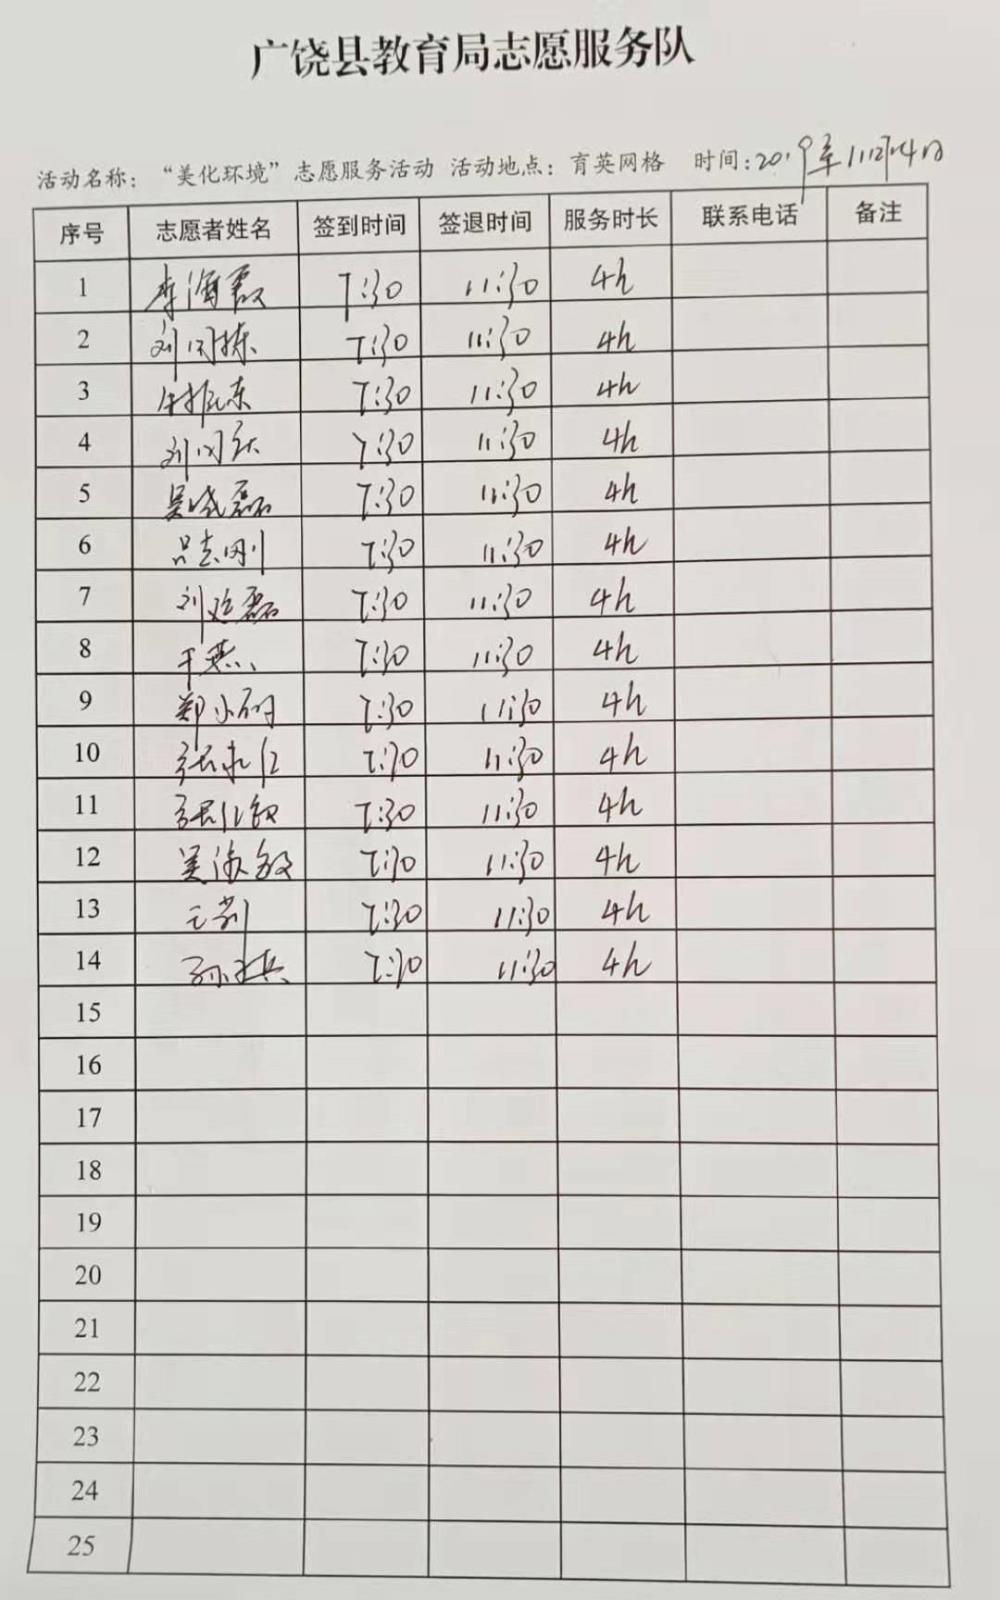 广饶县教育局志愿服务队
活动名称：“美化环境”志愿服务活动 活动地点：育英网格 时间：2019年11月14日
序号 志愿者姓名 签到时间 签退时间 服务时长 联系电话 备注
1 李海霞 7:30 11:30 4h
2 刘 7:30 11:30 4h
3 7:30 11:30 4h
4 刘 7:30 11:30 4h
5 吴晓磊 7:30 11:30 4h
6 吕志刚 7:30 11:30 4h
7 刘延磊 7:30 11:30 4h
8 7:30 11:30 4h
9 郑小丽 7:30 11:30 4h
10 张永仁 7:30 11:30 4h
11 张 7:30 11:30 4h
12 吴海敏 7:30 11:30 4h
13 7:30 11:30 4h
14 孙 7:30 11:30 4h
15
16
17
18
19
20
21
22
23
24
25